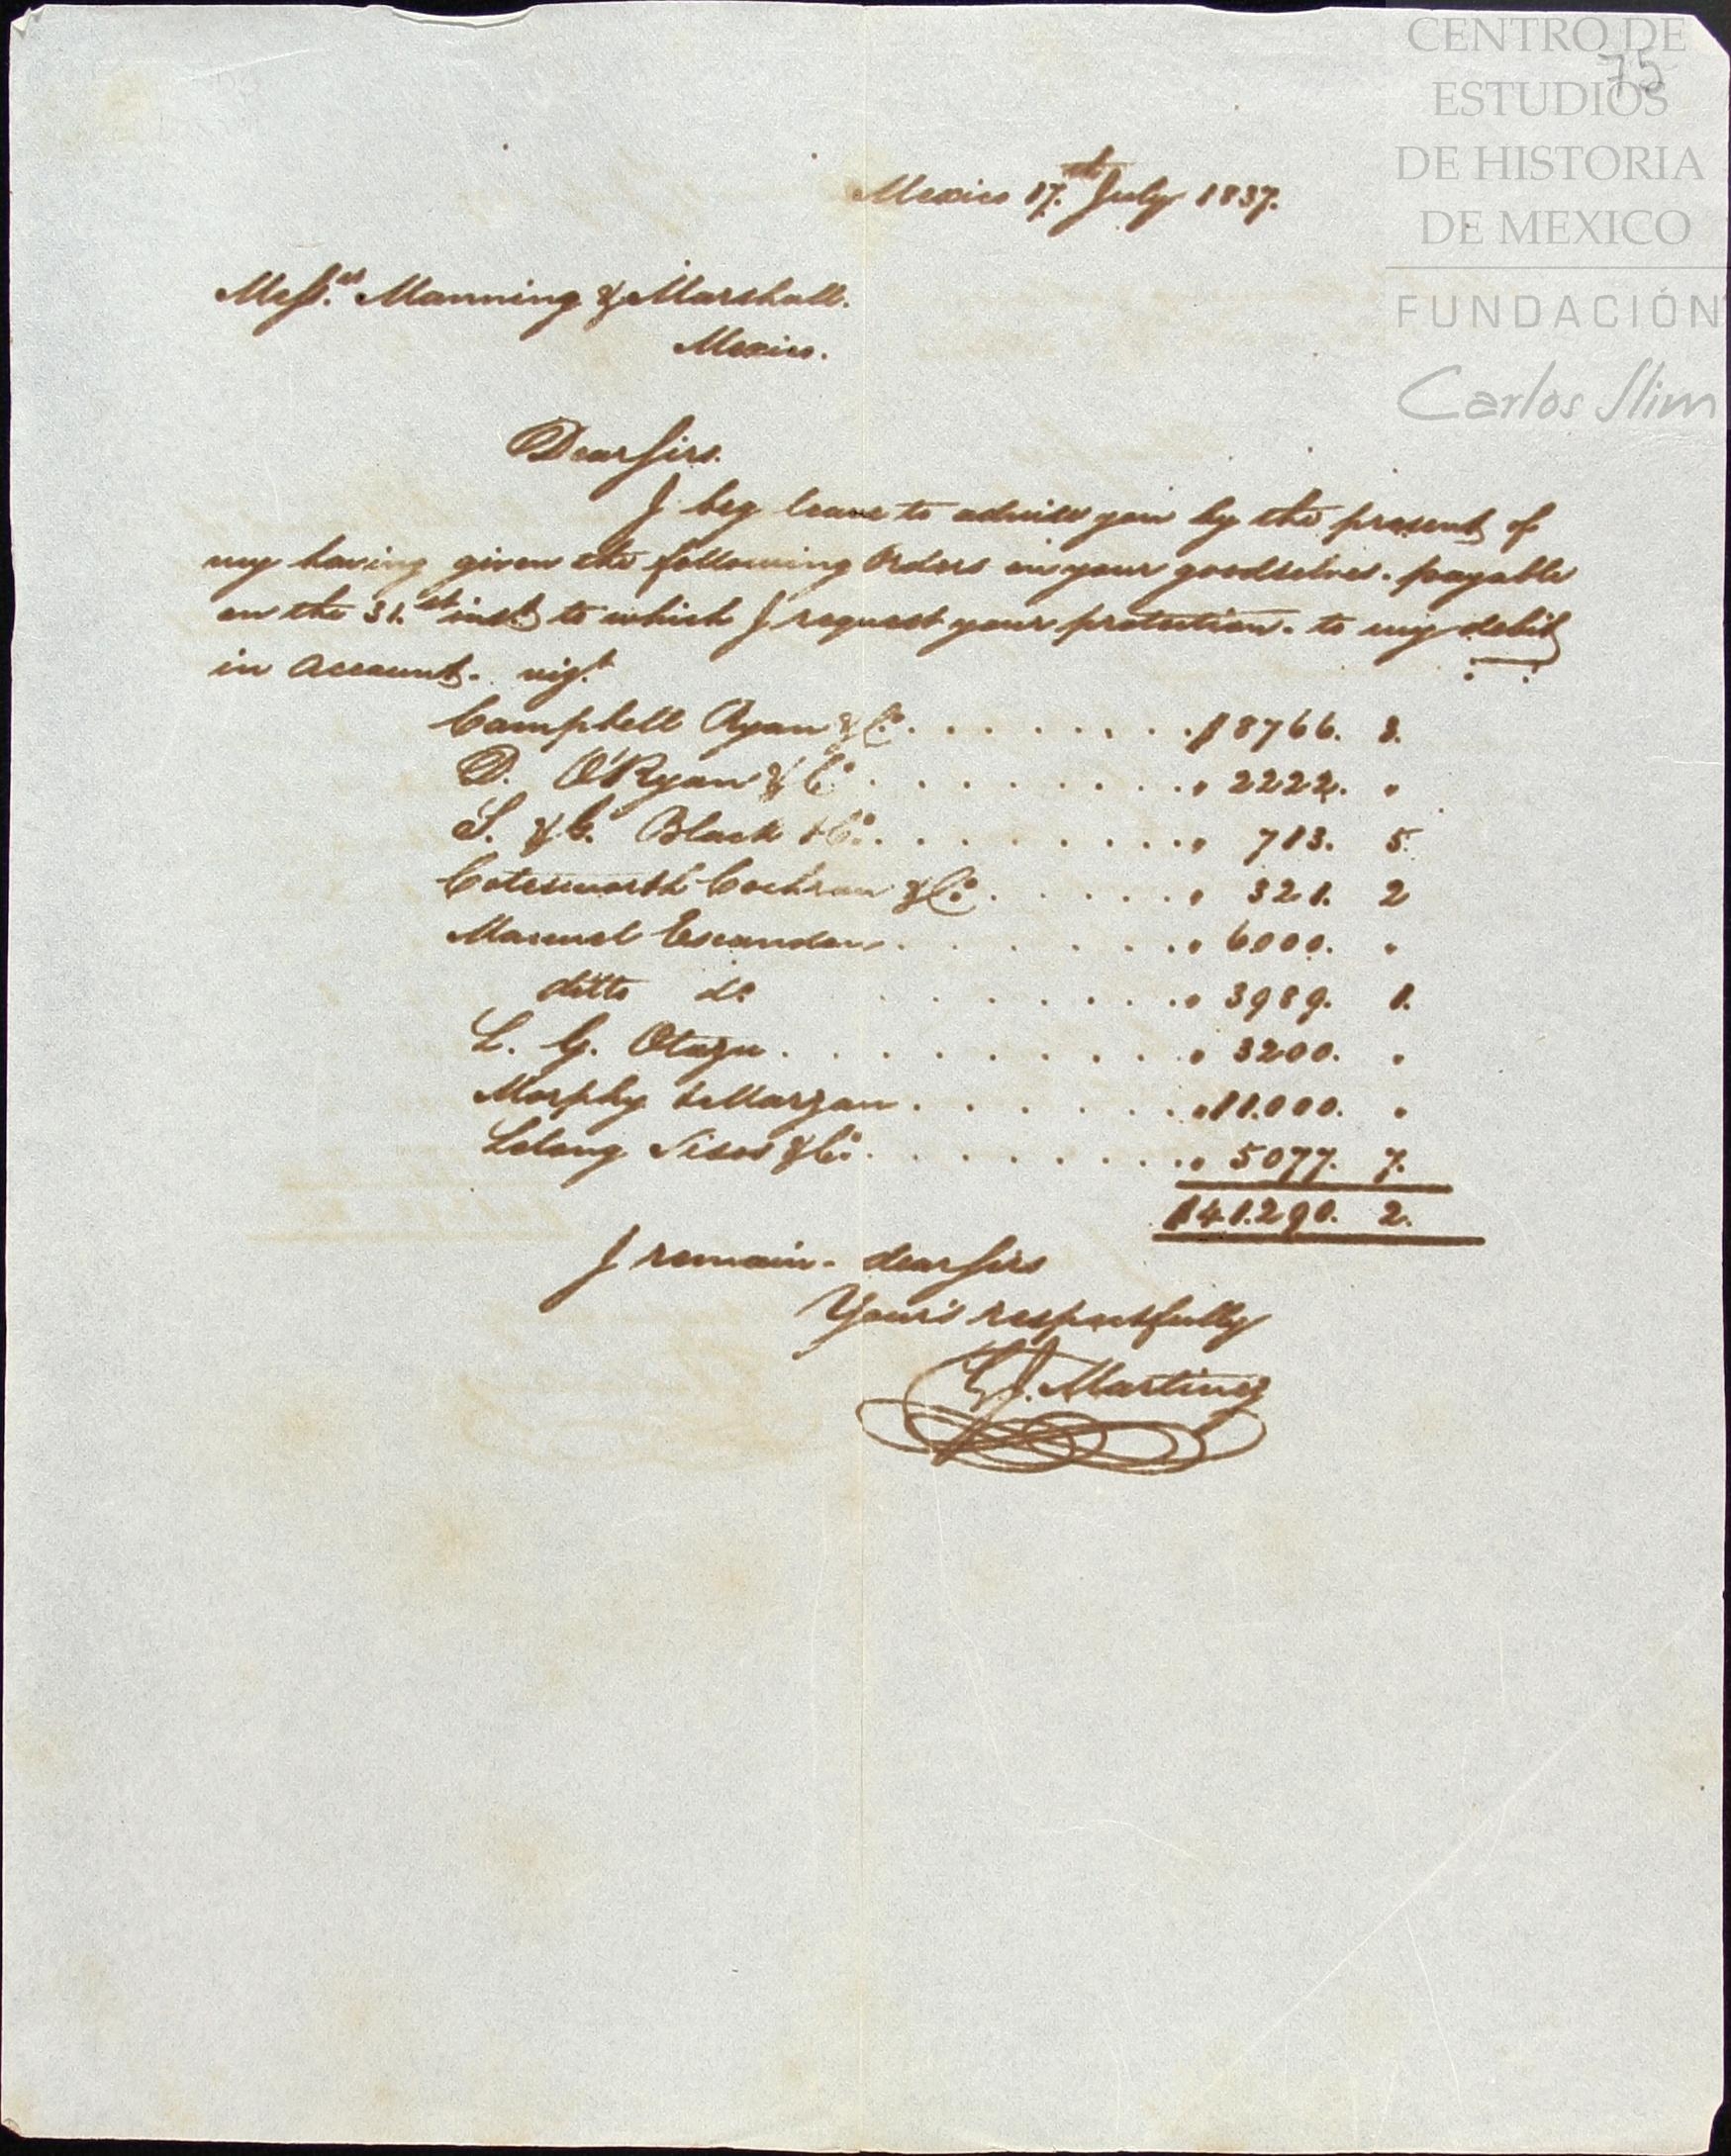 CENTRO DE
75
ESTUDIOS
DE HISTORIA
DE MEXICO
FUNDACIÓN
Carlos Slim
Mexico 17.th July 1837.
Mess.rs Manning & Marshall.
Mexico.
Dear Sirs.
I beg leave to advise you by the present of
my having given the following Orders on your goodselves. payable
on the 31.st inst to which I request your protection. to my debit
in Account. vizt
Campbell Ryan & Co. . . . . . . . . . $8766. 3.
D. O'Ryan & Co . . . . . . . . . " 2222. "
S. & G. Black & Co. . . . . . . . . . " 713. 5.
Cotesworth Cochran & Co. . . . . . " 321. 2
Manuel Escandon . . . . . . . " 6000. "
ditto do . . . . . . . " 3989. 1.
L. G. Otazu . . . . . . . . . . " 3200. "
Morphy & Marzan . . . . . . . " 11.000. "
Lelong Sisos & Co. . . . . . . . . . " 5077. 7.
$41.290. 2.
I remain. dear Sirs
Your's respectfully
G. J. Martinez